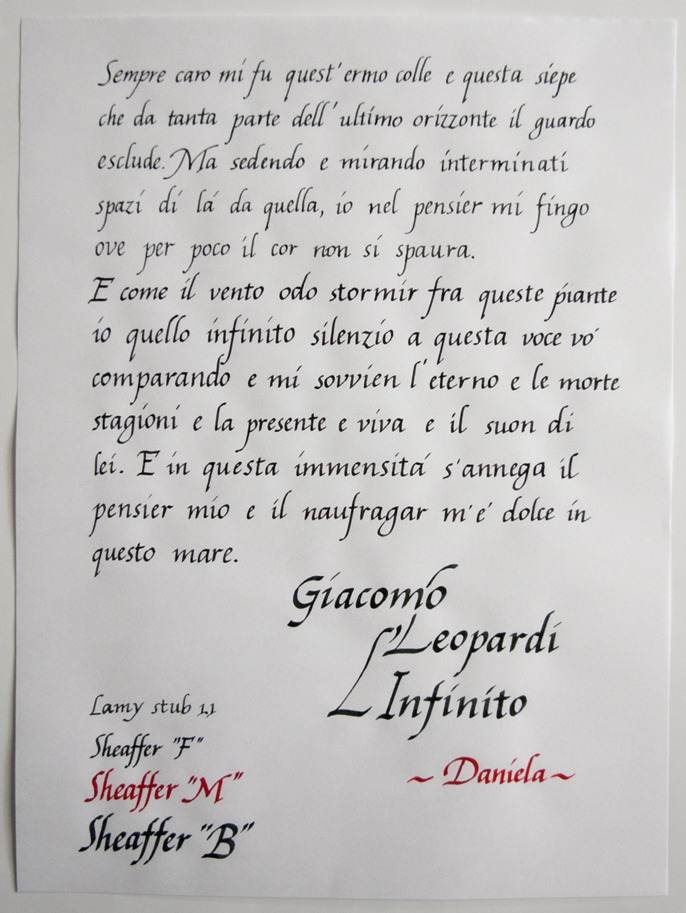 Sempre caro mi fu quest'ermo colle e questa siepe
che da tanta parte dell'ultimo orizzonte il guardo
esclude. Ma sedendo e mirando interminati
spazi di lá da quella, io nel pensier mi fingo
ove per poco il cor non si spaura.
E come il vento odo stormir fra queste piante
io quello infinito silenzio a questa voce vo'
comparando e mi sovvien l'eterno e le morte
stagioni e la presente e viva e il suon di
lei. E in questa immensitá s'annega il
pensier mio e il naufragar m'e' dolce in
questo mare.
Giacomo
Leopardi
L'Infinito
~ Daniela ~
Lamy stub 1,1
Sheaffer "F"
Sheaffer "M"
Sheaffer "B"